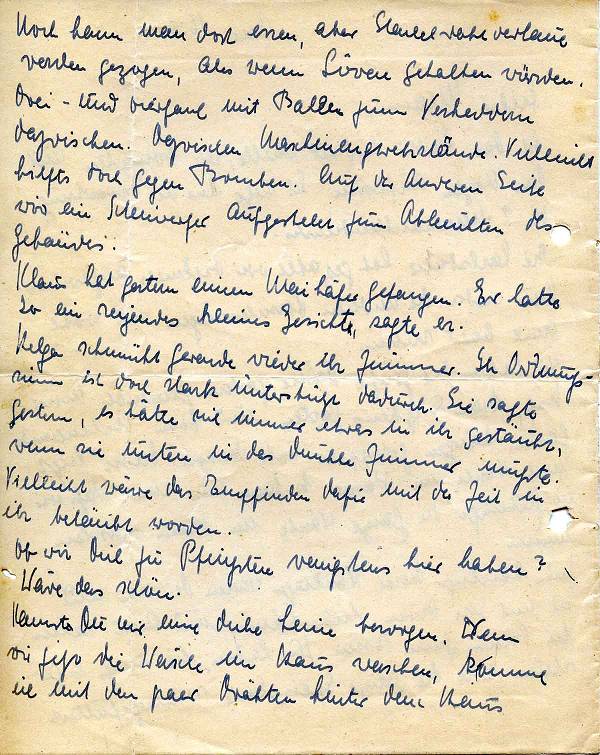 Noch kann man dort essen, aber Stacheldrahtverhaue
werden gezogen, als wenn Löwen gehalten würden.
Drei- und vierfach mit Ballen zum Verheddern
dazwischen. Dazwischen Maschinengewehrstände. Vielleicht
hilfts doch gegen Bomben. Auf der anderen Seite
wird ein Scheinwerfer aufgestellt zum Ableuchten des
Gebäudes.
Klaus hat gestern einen Maikäfer gefangen. Er hatte
so ein reizendes kleines Gesicht, sagte er.
Helga schmückt gerade wieder ihr Zimmer. Ihr Ordnungs-
sinn ist doch stark unterstützt dadurch. Sie sagte
gestern, es hätte sie immer etwas in ihr gesträubt,
wenn sie unten in das dunkle Zimmer mußte.
Vielleicht wäre das Empfinden dafür mit der Zeit in
ihr betäubt worden.
Ob wir Dich zu Pfingsten wenigstens hier haben?
Wäre das schön.
Kannst Du mir eine dicke Leine besorgen. Wenn
wir jetzt die Wäsche im Haus waschen, komme
ich mit den paar Drähten hinter dem Haus